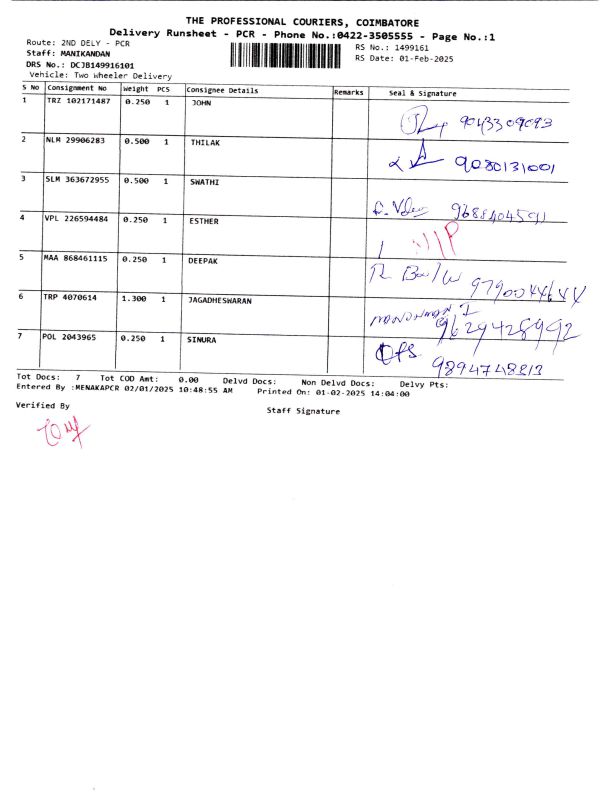 THE PROFESSIONAL COURIERS, COIMBATORE
Delivery Runsheet - PCR - Phone No.:0422-3505555 - Page No.:1
Route: 2ND DELY - PCR RS No.: 1499161
Staff: MANIKANDAN RS Date: 01-Feb-2025
DRS No.: DCJB149916101
Vehicle: Two Wheeler Delivery
S No Consignment No Weight PCS Consignee Details Remarks Seal & Signature
1 TRZ 102171487 0.250 1 JOHN
9043309093
2 NLM 29906283 0.500 1 THILAK
9080131001
3 SLM 363672955 0.500 1 SWATHI
9688404591
4 VPL 226594484 0.250 1 ESTHER
5 MAA 868461115 0.250 1 DEEPAK
6 TRP 4070614 1.300 1 JAGADHESWARAN
9629428992
7 POL 2043965 0.250 1 SINURA
9894748813
Tot Docs: 7 Tot COD Amt: 0.00 Delvd Docs: Non Delvd Docs: Delvy Pts:
Entered By :MENAKAPCR 02/01/2025 10:48:55 AM Printed On: 01-02-2025 14:04:00
Verified By Staff Signature